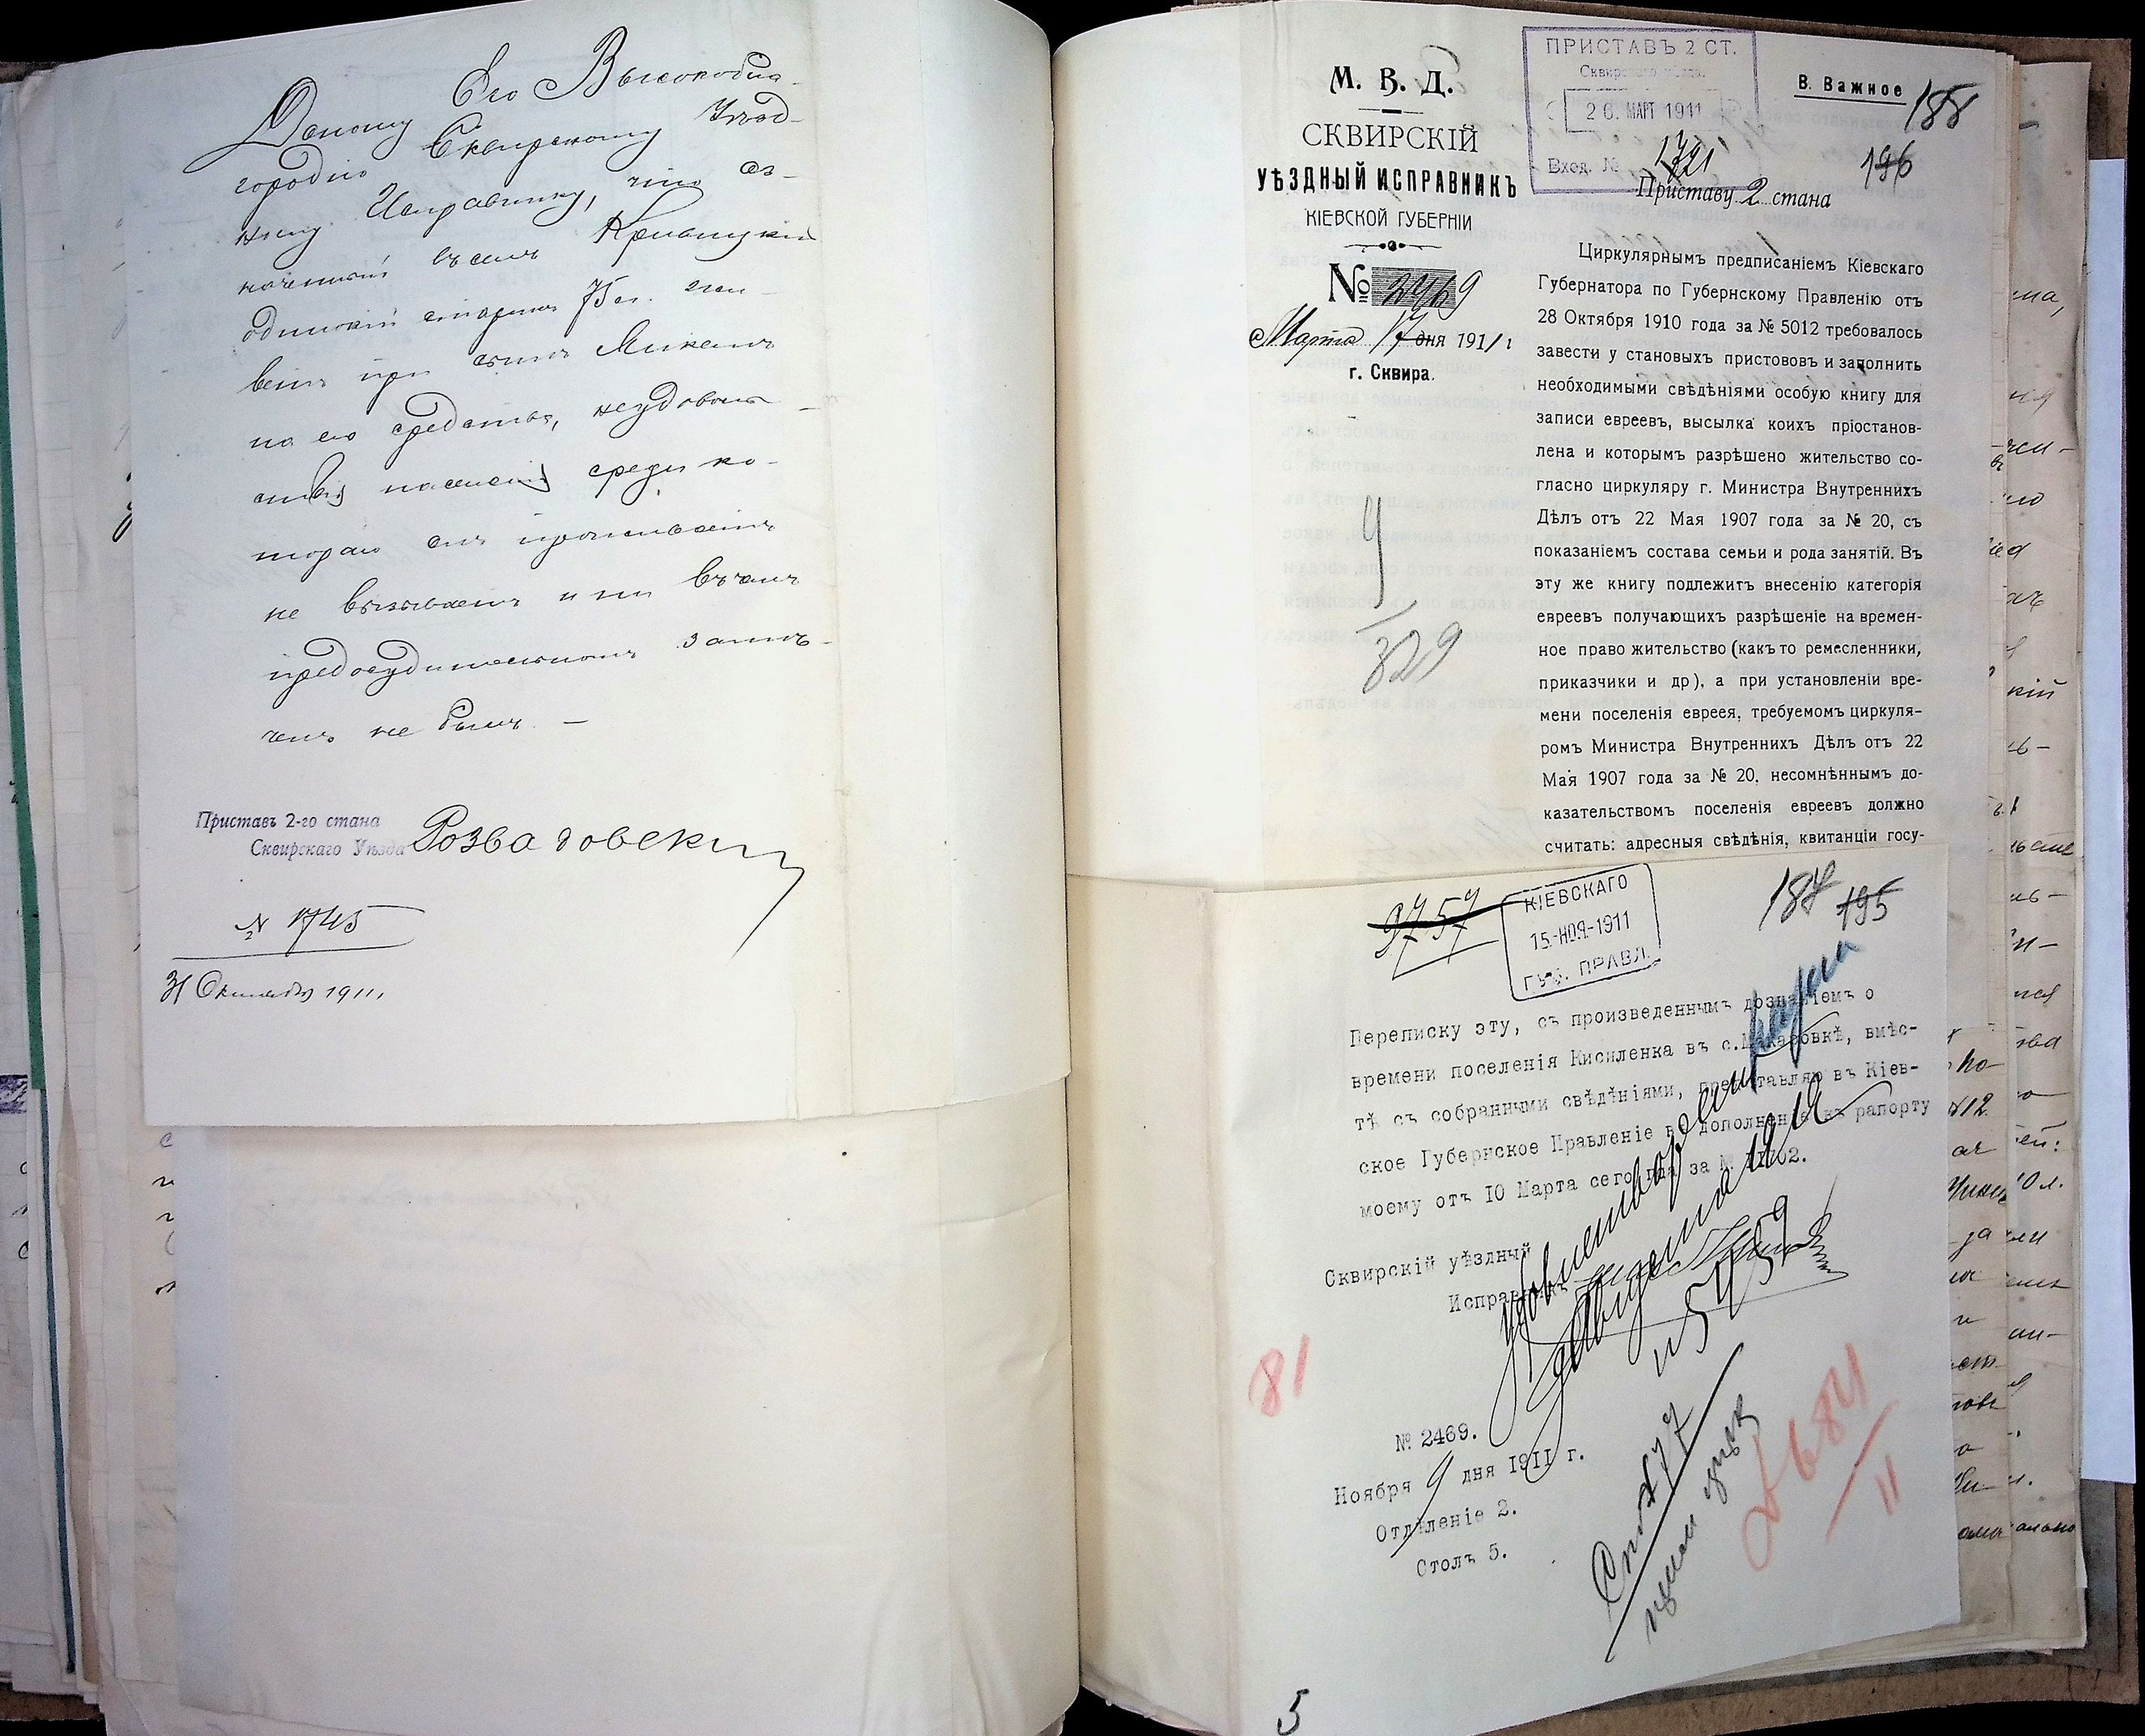 Доношу Его Высокобла-
городію Сквирскому Уѣзд-
ному Исправнику, что оз-
наченный въ семъ Кривицкій
одинокій старикъ 75 л. жи-
ветъ при сынѣ
на его средства, неудоволь-
ствія населенія среди ко-
тораго онъ проживаетъ
не вызываетъ и ни въ чемъ
предосудительномъ замѣ-
ченъ не былъ. —
Приставъ 2-го стана
Сквирскаго Уѣзда Розвадовскій
№ 1745
31 Октября 1911,
М. В. Д.
СКВИРСКІЙ
УѢЗДНЫЙ ИСПРАВНИКЪ
КІЕВСКОЙ ГУБЕРНІИ
№ 2469
Марта 17 дня 1911 г
г. Сквира.
4
329
ПРИСТАВЪ 2 СТ.
Сквирскаго уѣзда.
26. МАРТ 1911
Вход. № 1721
В. Важное
188
196
Приставу 2 стана
Циркулярнымъ предписаніемъ Кіевскаго
Губернатора по Губернскому Правленію отъ
28 Октября 1910 года за № 5012 требовалось
завести у становыхъ приставовъ и заполнить
необходимыми свѣдѣніями особую книгу для
записи евреевъ, высылка коихъ пріостанов-
лена и которымъ разрѣшено жительство со-
гласно циркуляру г. Министра Внутреннихъ
Дѣлъ отъ 22 Мая 1907 года за № 20, съ
показаніемъ состава семьи и рода занятій. Въ
эту же книгу подлежитъ внесенію категорія
евреевъ получающихъ разрѣшеніе на времен-
ное право жительство (какъ то ремесленники,
приказчики и др), а при установленіи вре-
мени поселенія еврея, требуемомъ циркуля-
ромъ Министра Внутреннихъ Дѣлъ отъ 22
Мая 1907 года за № 20, несомнѣннымъ до-
казательствомъ поселенія евреевъ должно
считать: адресныя свѣдѣнія, квитанціи госу-
9757
КІЕВСКАГО
15-НОЯ-1911
ГУБ. ПРАВЛ.
187 195
Переписку эту, съ произведеннымъ дознаніемъ о
времени поселенія Кисиленка въ с.Макаровкѣ, вмѣс-
тѣ съ собранными свѣдѣніями, представляю въ Кіев-
ское Губернское Правленіе въ дополненіе къ рапорту
моему отъ 10 Марта сего года за №
Сквирскій уѣздный
Исправникъ
81
№ 2469.
Ноября 9 дня 1911 г.
Отдѣленіе 2.
Столъ 5.
11
5